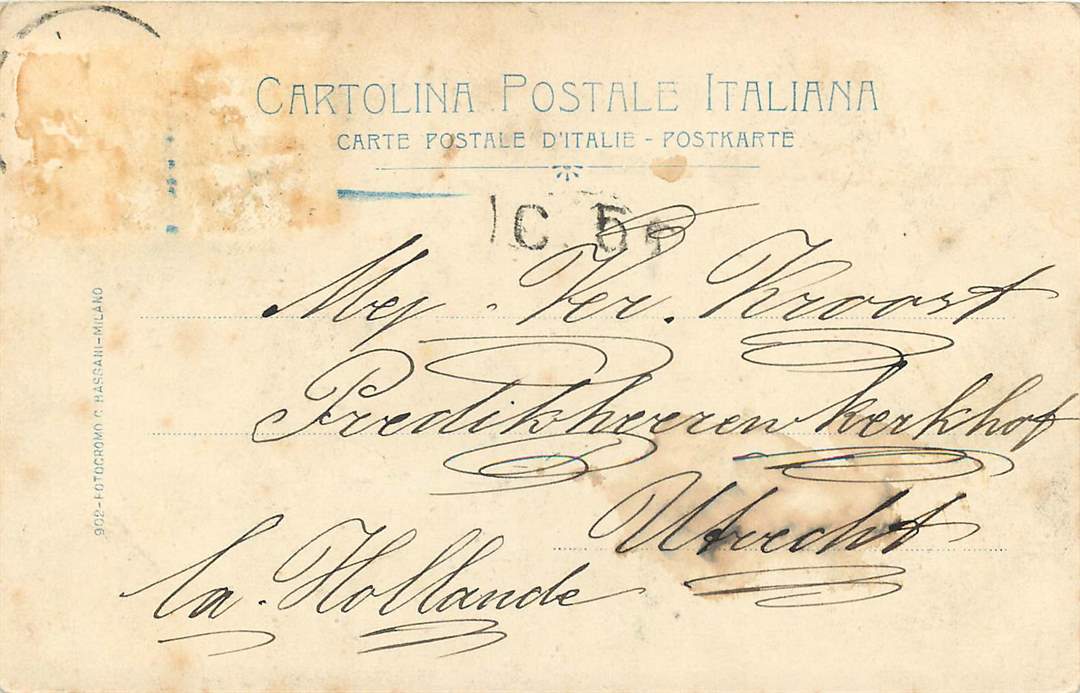 CARTOLINA POSTALE ITALIANA
CARTE POSTALE D'ITALIE - POSTKARTE
C 5
Mej. Ver. Kroost
Predikheeren kerkhof
Utrecht
La. Hollande
902-FOTOCROMO C. BASSANI-MILANO